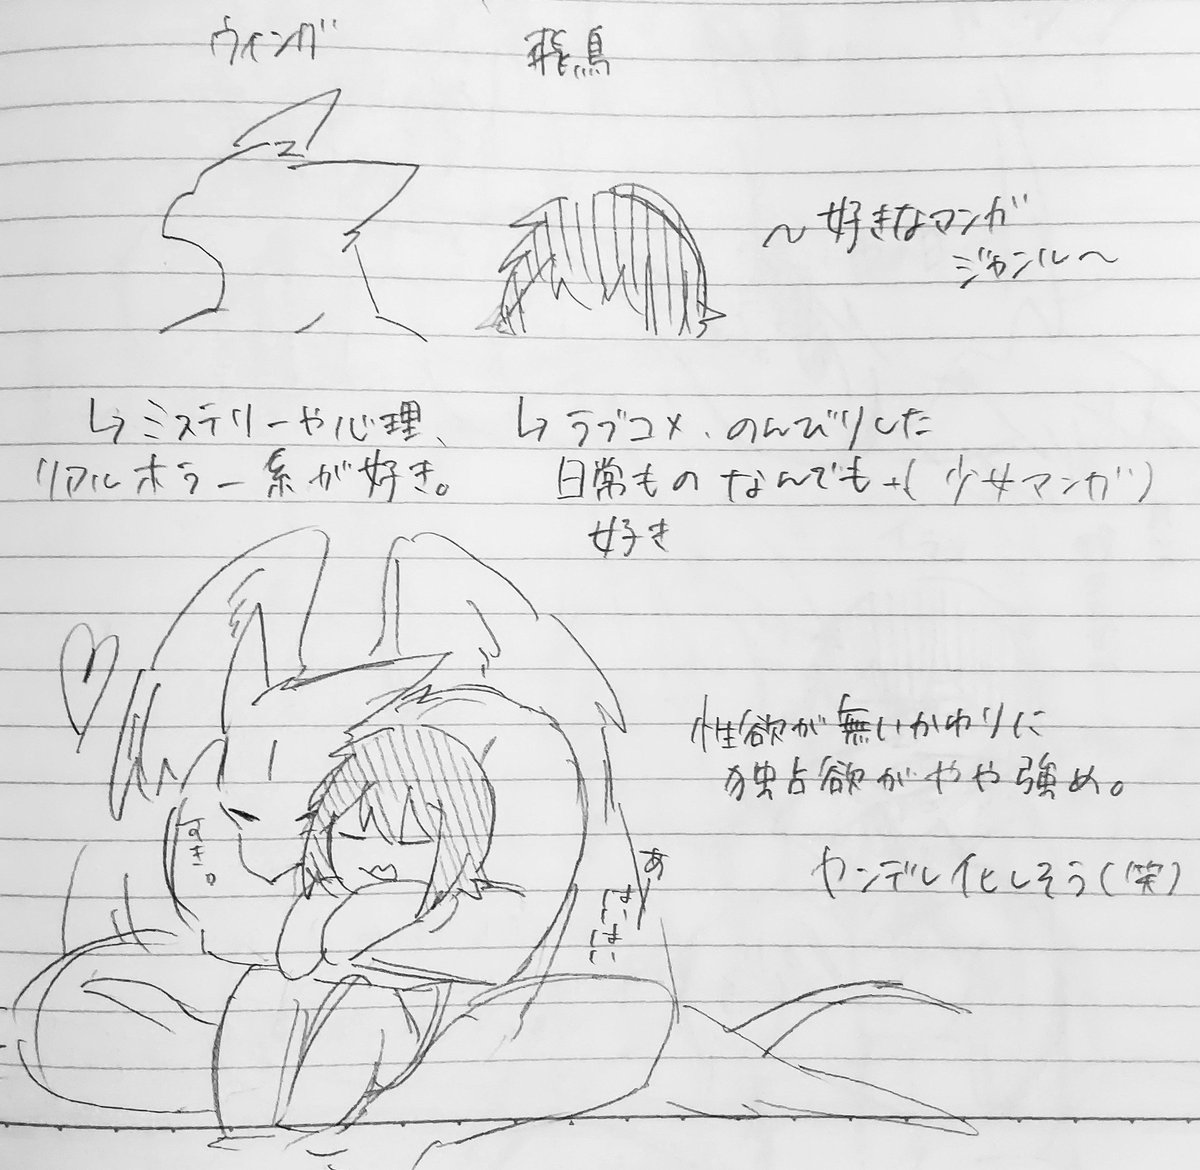 ウィング
飛鳥
～好きなマンガ
ジャンル～
↳ミステリーや心理、
リアルホラー系が好き。
↳ラブコメ、のんびりした
日常ものなんでも+(少女マンガ)
好き
性欲が無いかわりに
独占欲がやや強め。
ヤンデレ化しそう(笑)
すき。
あー
はいはい